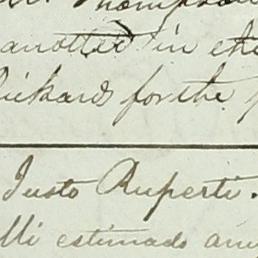 Thompson
another in
Rickards for the
Justo Ruperti.
Mi estimado ami